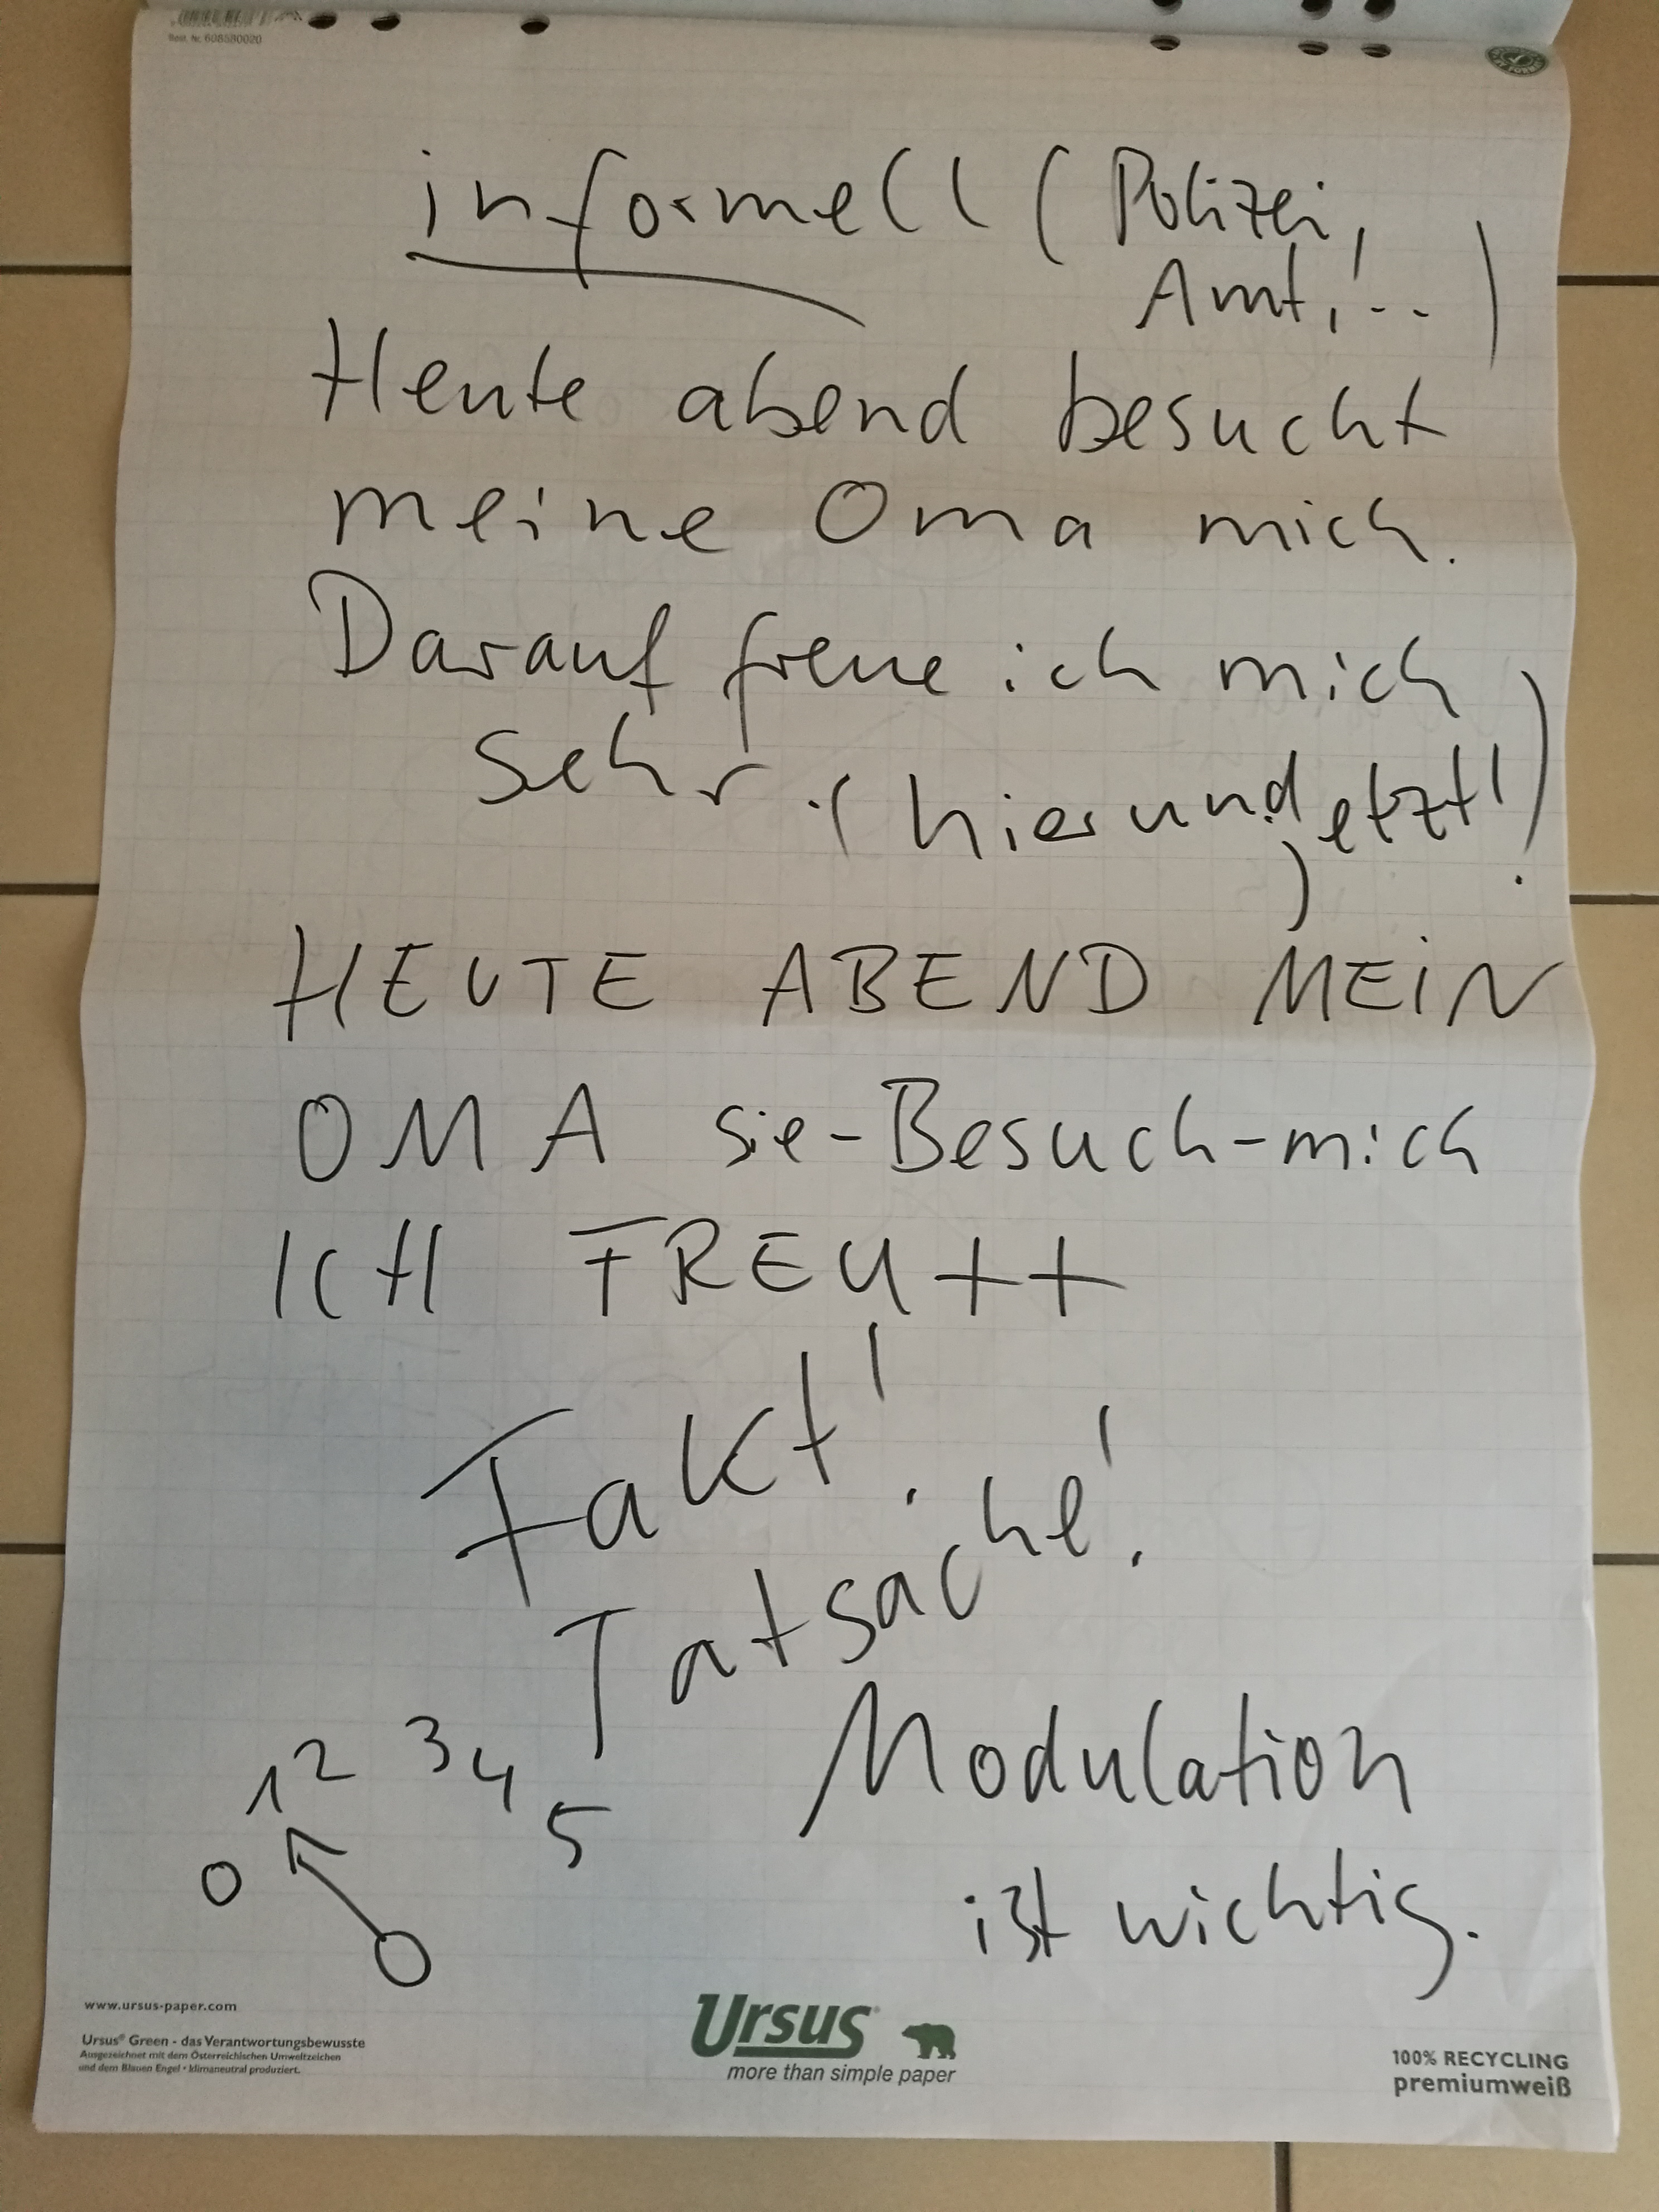 Best. Nr. 608580020
informell (Polizei,
Amt, ...)
Heute abend besucht
meine Oma mich.
Darauf freue ich mich
sehr. (hier und jetzt!)
HEUTE ABEND MEIN
OMA sie-Besuch-mich
ICH FREU++
Fakt!
Tatsache!
0 1 2 3 4 5
Modulation
ist wichtig.
www.ursus-paper.com
Ursus® Green - das Verantwortungsbewusste
Ausgezeichnet mit dem Österreichischen Umweltzeichen
und dem Blauen Engel • klimaneutral produziert.
Ursus®
more than simple paper
100% RECYCLING
premiumweiß